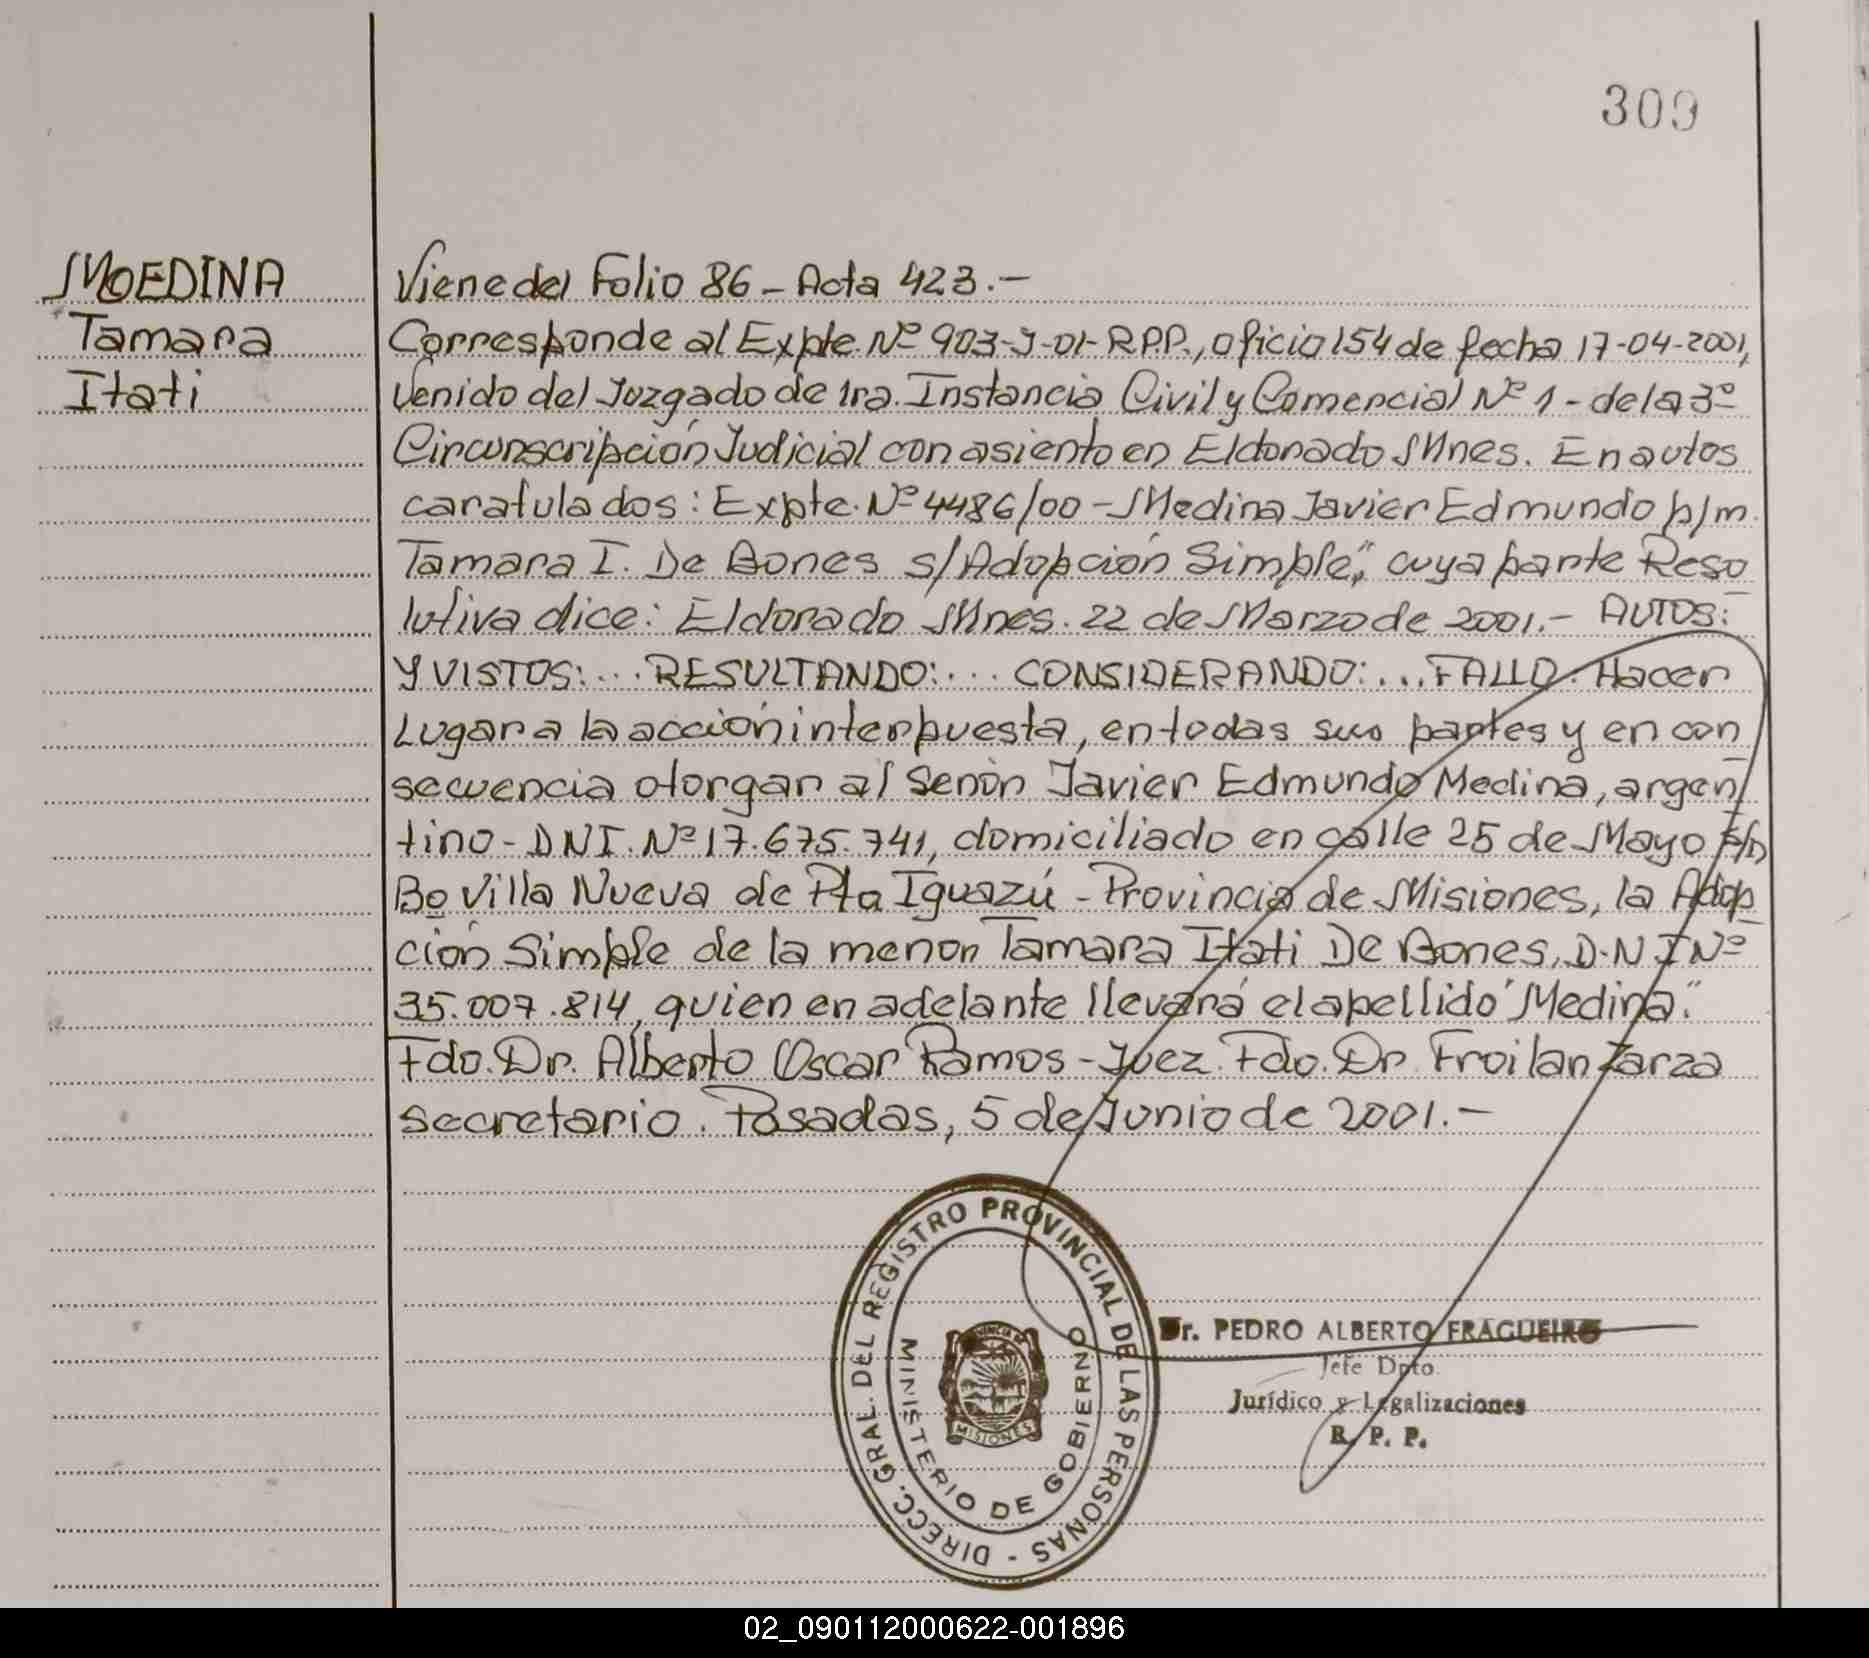 309
MOEDINA
Tamara
Itati
Viene del Folio 86 - Acta 423.-
Corresponde al Expte. Nº 903-J-01-R.P.P., oficio 154 de fecha 17-04-2001,
Venido del Juzgado de 1ra. Instancia Civil y Comercial Nº 1 - de la 3º
Circunscripción Judicial con asiento en Eldorado Mnes. En autos
caratulados: Expte. Nº 4486/00 - Medina Javier Edmundo p/m.
Tamara I. De Bones s/Adopción Simple", cuya parte Reso
lutiva dice: Eldorado Mnes. 22 de Marzo de 2001.- AUTOS:
Y VISTOS:... RESULTANDO:... CONSIDERANDO:... FALLO. Hacer
Lugar a la acción interpuesta, en todas sus partes y en con
secuencia otorgar al Señor Javier Edmundo Medina, argen
tino - DNI. Nº 17.675.741, domiciliado en calle 25 de Mayo s/n
Bo Villa Nueva de Pta Iguazú - Provincia de Misiones, la Adop
ción Simple de la menor Tamara Itati De Bones, D.N.I Nº
35.007.814, quien en adelante llevará el apellido "Medina."
Fdo. Dr. Alberto Oscar Ramos - Juez. Fdo. Dr. Froilan Zarza
secretario. Posadas, 5 de Junio de 2001.-
DIRECC. GRAL. DEL REGISTRO PROVINCIAL DE LAS PERSONAS -
MINISTERIO DE GOBIERNO
PROVINCIA DE
MISIONES
Dr. PEDRO ALBERTO FRAGUEIRO
Jefe Dpto.
Jurídico y Legalizaciones
R. P. P.
02_090112000622-001896